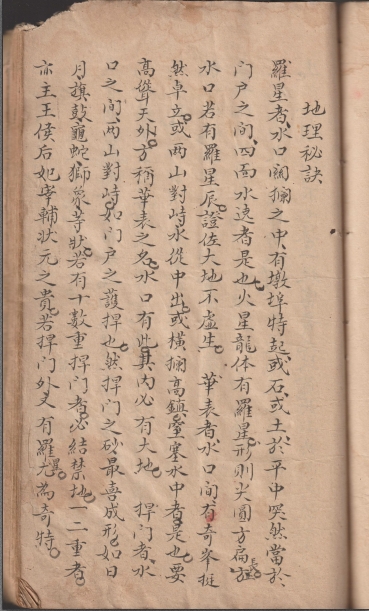 地理秘訣
羅星者水口關攔之中有墩埠特起或石或土於平中突然當於
門户之间四面水遶者是也火星龍体有羅星形則尖圓方扁
水口若有羅星辰證佐大地不虛生 華表者水口間有奇峯挺
然卓立或两山對峙水從中出或橫攔高鎮窒塞水中者是也要
高聳天外方稱華表之名水口有此其内必有大地 捍門者水
口之间两山對峙如門户之護捍也然捍門之砂最喜成形如日
月旗鼓龜蛇獅象等狀若有十數重捍門者必结禁地一二重者
亦主王侯后妃宰輔狀元之貴若捍門外又有羅星尤為奇特